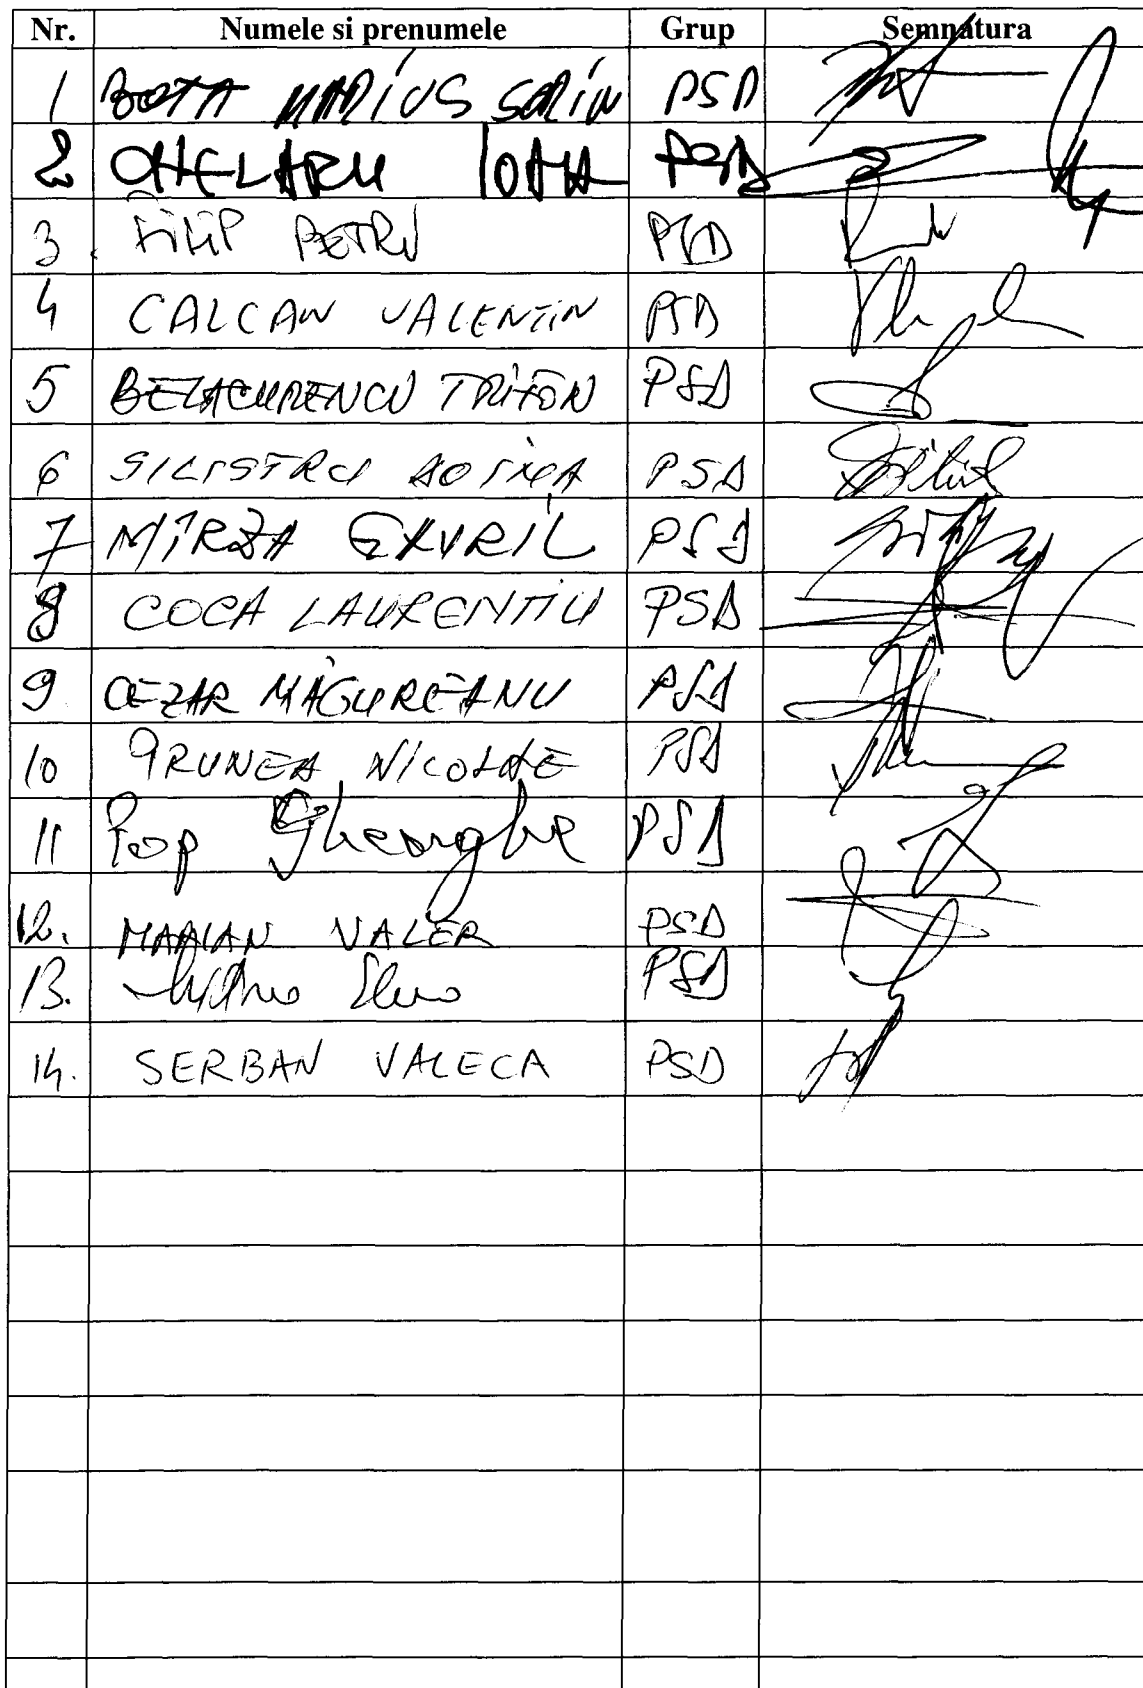 Nr. Numele si prenumele Grup Semnatura
1 BOTA MARIUS SORIN PSD
2 CHELARU IOAN PSD
3. FILIP PETRU PSD
4 CALCAN VALENTIN PSD
5 BELACURENCU TRIFON PSD
6 SILISTRU DOINA PSD
7 MÎRZA GAVRIL PSD
8 COCA LAURENTIU PSD
9 CEZAR MĂGUREANU PSD
10 PRUNEA NICOLAE PSD
11 Pop Gheorghe PSD
12. MARIAN VALER PSD
13. PSD
14. SERBAN VALECA PSD